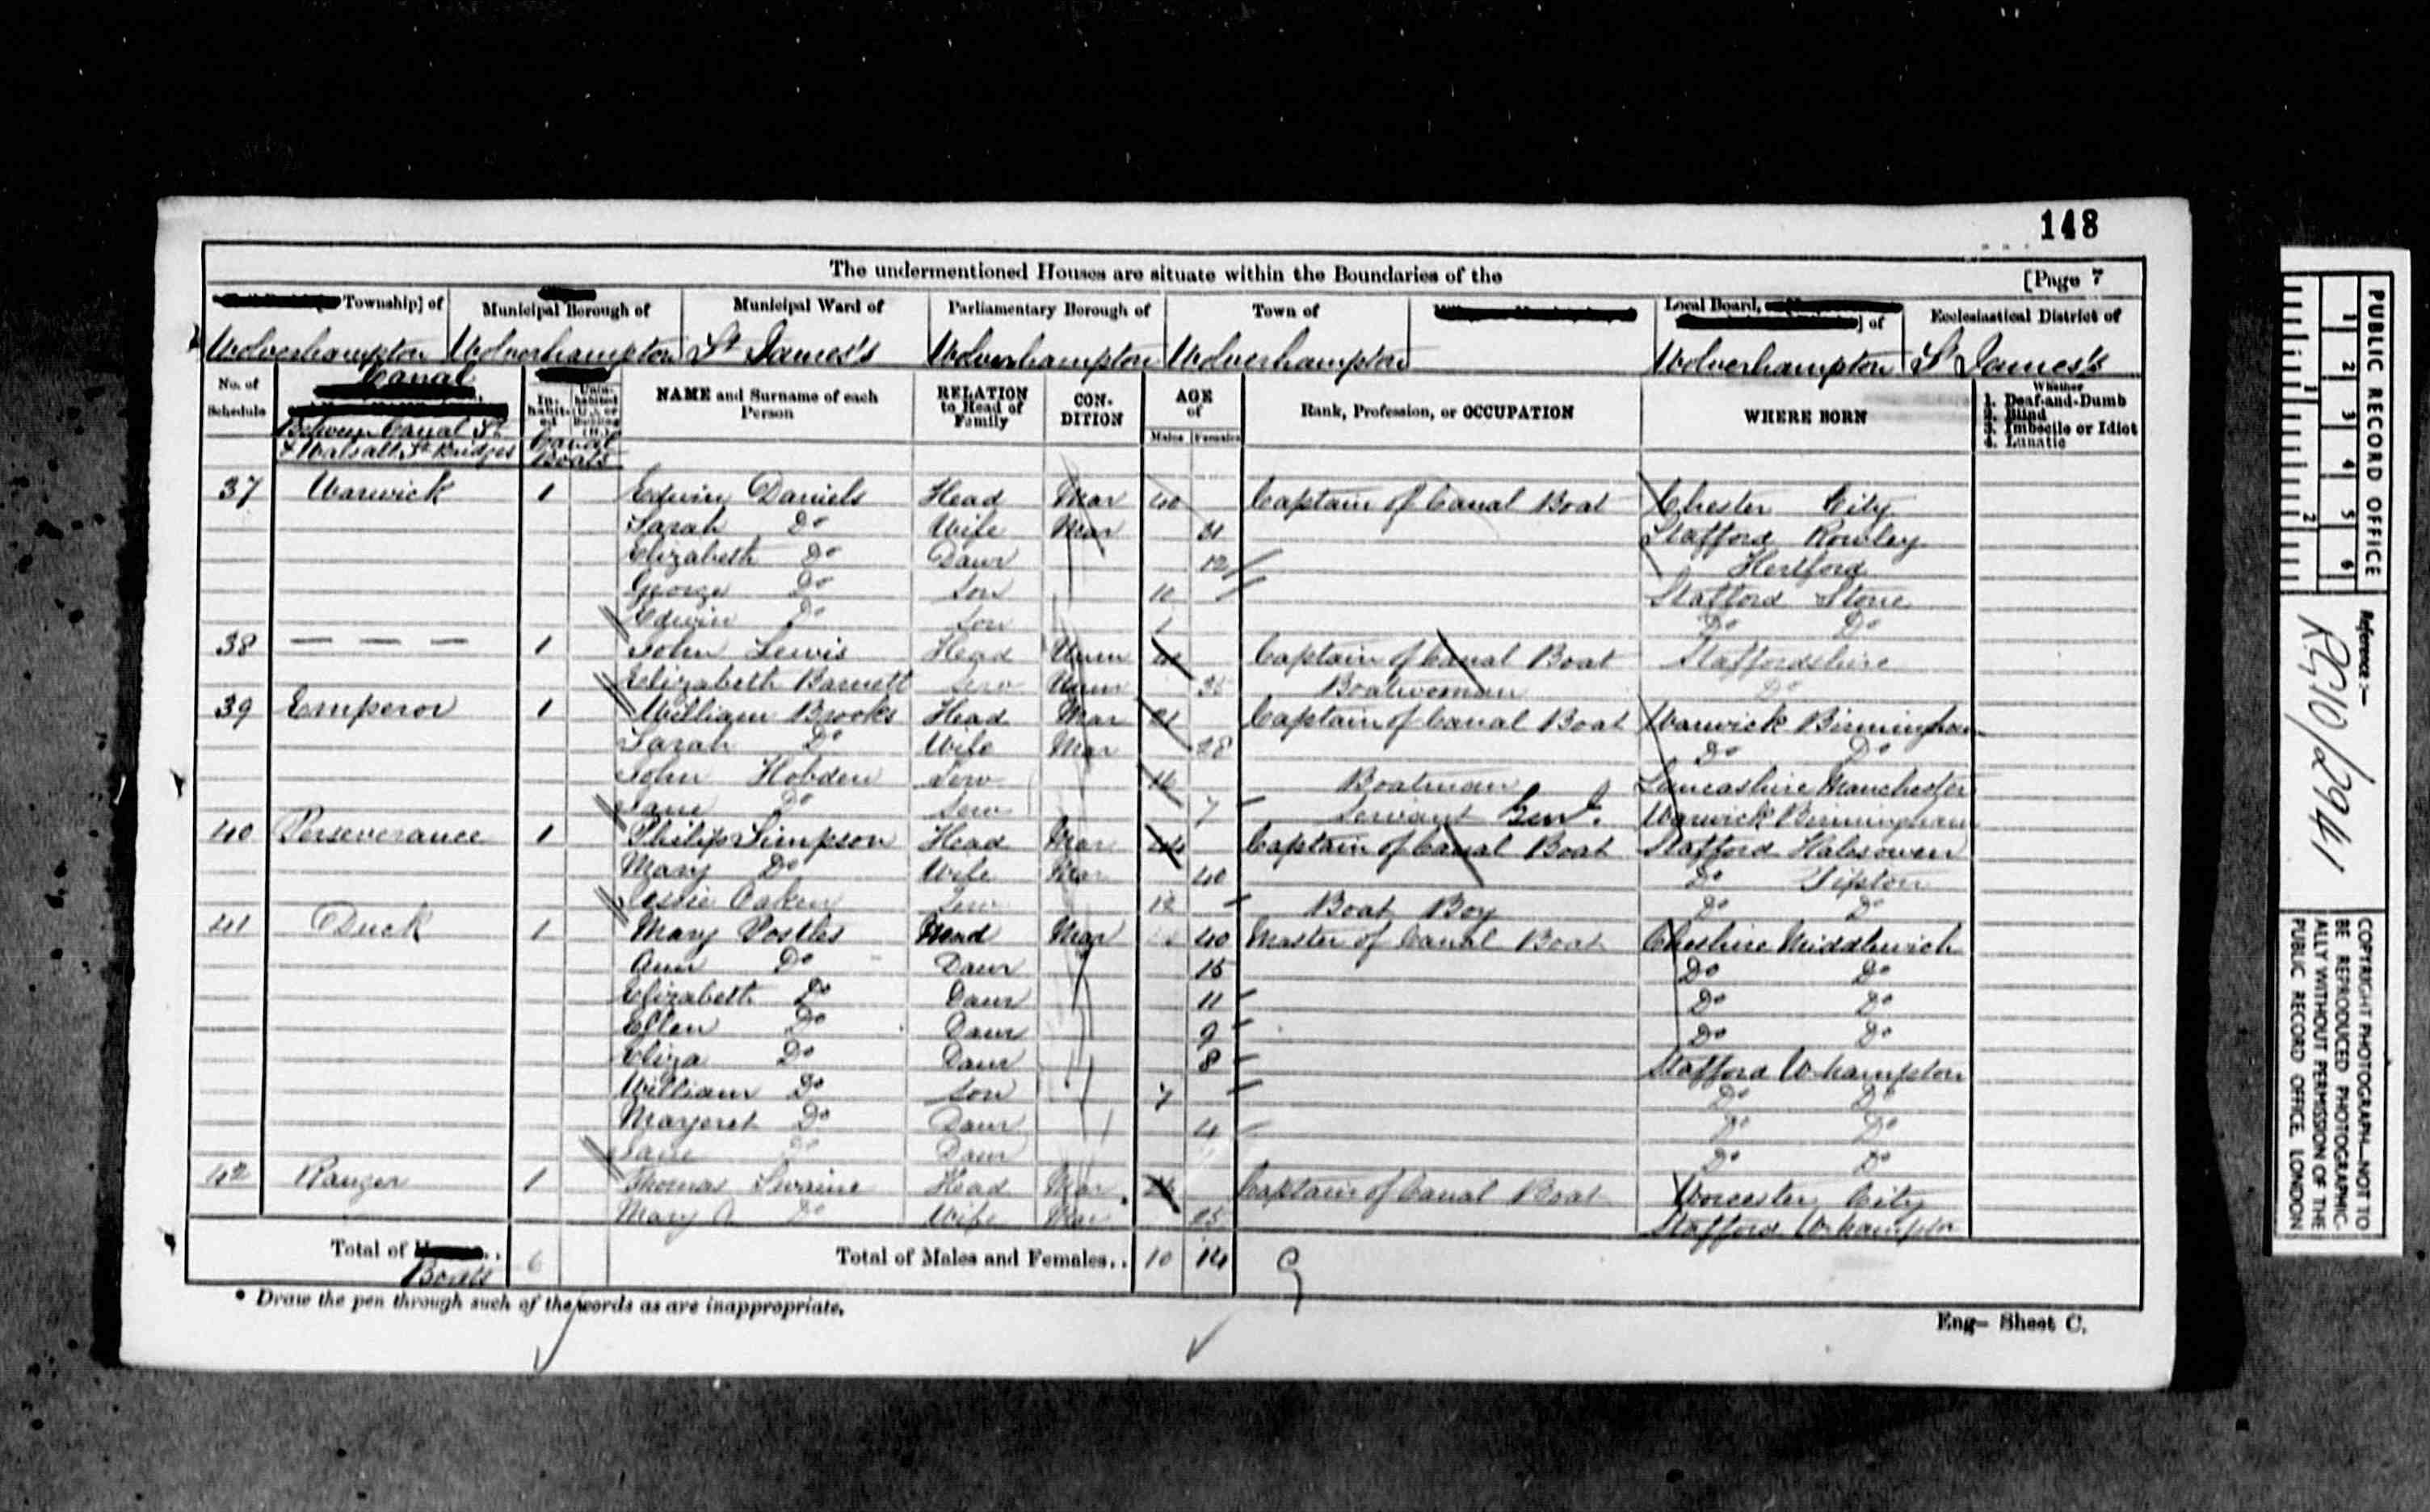 148
The undermentioned Houses are situate within the Boundaries of the [Page 7
Township] of Municipal Borough of Municipal Ward of Parliamentary Borough of Town of Local Board, ] of Ecclesiastical District of
Wolverhampton Wolverhampton St James's Wolverhampton Wolverhampton Wolverhampton St James's
No. of Schedule Canal Between Canal St & Walsall St Bridges In-habit-ed Unin-habited (U.), or Building (B.) Canal Boats NAME and Surname of each Person RELATION to Head of Family CON-DITION AGE of Males Females Rank, Profession, or OCCUPATION WHERE BORN Whether 1. Deaf-and-Dumb 2. Blind 3. Imbecile or Idiot 4. Lunatic
37 Warwick 1 Edwin Daniels Head Mar 40 Captain of Canal Boat Chester City
Sarah Do Wife Mar 31 Stafford Rowley
Elizabeth Do Daur 12 Hertford
George Do Son 10 Stafford Stone
Edwin Do Son 1 Do Do
38 — — — 1 John Lewis Head Unm Captain of Canal Boat Staffordshire
Elizabeth Barnett Serv Unm Boatwoman Do
39 Emperor 1 William Brooks Head Mar Captain of Canal Boat Warwick Birmingham
Sarah Do Wife Mar 28 Do Do
John Hobden Serv 16 Boatman Lancashire Manchester
Jane Do Serv 7 Servant Genl. Warwick Birmingham
40 Perseverance 1 Philip Simpson Head Mar 44 Captain of Canal Boat Stafford Halesowen
Mary Do Wife Mar 40 Do Tipton
Oaken Serv 12 Boat Boy Do Do
41 Duck 1 Mary Postles Head Mar 40 Master of Canal Boat Cheshire Middlewich
Ann Do Daur 15 Do Do
Elizabeth Do Daur 11 Do Do
Ellen Do Daur 9 Do Do
Eliza Do Daur 8 Stafford W.hampton
William Do Son 7 Do Do
Margeret Do Daur 4 Do Do
Jane Do Daur Do Do
42 Ranger 1 Thomas Swaine Head Mar 26 Captain of Canal Boat Worcester City
Mary A Do Wife Mar 25 Stafford W.hampton
Total of Boats 6 Total of Males and Females.. 10 14
* Draw the pen through such of the words as are inappropriate.
Eng— Sheet C.
PUBLIC RECORD OFFICE
1 2 3 4 5 6
1 2
Reference :—
RG10/2941
COPYRIGHT PHOTOGRAPH—NOT TO
BE REPRODUCED PHOTOGRAPHIC-
ALLY WITHOUT PERMISSION OF THE
PUBLIC RECORD OFFICE, LONDON